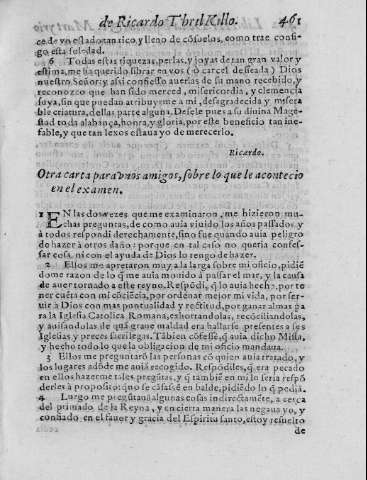 de Ricardo Threlkillo. 461
ce de vn estado tan rico, y lleno de cõsuelos, como trae consi-
go esta soledad.
6 Todas estas riquezas, perlas, y joyas de tan gran valor y
estima, me ha querido librar en vos (ò carcel desseada) Dios
nuestro Señor; y assi confiesso auerlas de su mano recebido, y
reconozco que han sido merced, misericordia, y clemencia
suya, sin que puedan atribuyrseme a mi, desagradecida y misera
ble criatura, dellas parte alguna. Desele pues a su diuina Mage-
stad toda alabança, honra, y gloria, por este beneficio tan ine-
fable, y que tan lexos estaua yo de merecerlo.
Ricardo.
Otra carta para vnos amigos, sobre lo que le acontecio
en el examen.
1 EN las dos vezes que me examinaron, me hizieron mu-
chas preguntas, de como auia viuido los años passados, y
à todos respondi derechamente, sino fue quando auia peligro
de hazer à otros daño: porque en tal caso no queria confes-
sar cosa, ni con el ayuda de Dios lo tengo de hazer.
2 Ellos me apretaron muy a la larga sobre mi oficio, pidiẽ
dome razon de lo q̃ me auia mouido à passar el mar, y la causa
de auer tornado a este reyno. Respõdi, q̃ lo auia hecho, por te
ner cuẽta con mi cõsciẽcia, por ordenar mejor mi vida, por ser-
uir à Dios con mas pontualidad y rectitud, por ganar almas pa
ra la Iglesia Catolica Romana, exhortandolas, recõciliandolas,
y auisandolas de quã graue maldad era hallarse presentes a sus
Iglesias y preces sacrilegas. Tãbien cõfesse, q̃ auia dicho Missa,
y hecho todo lo que la obligacion de mi oficio mandaua.
3 Ellos me preguntarõ las personas cõ quien auia tratado, y
los lugares adõde me auiã recogido. Respõdiles, q̃ era pecado
en ellos hazerme tales pregũtas, y q̃ tambiẽ en mi lo seria respõ
derles à proposito: q̃ no se cãsassẽ en balde, pidiẽdo lo q̃ podiã.
4 Luego me pregũtauã algunas cosas indirectamẽte, a cerca
del primado de la Reyna, y en cierta manera las negaua yo, y
confiado en el fauor y gracia del Espiritu santo, estoy resuelto
de